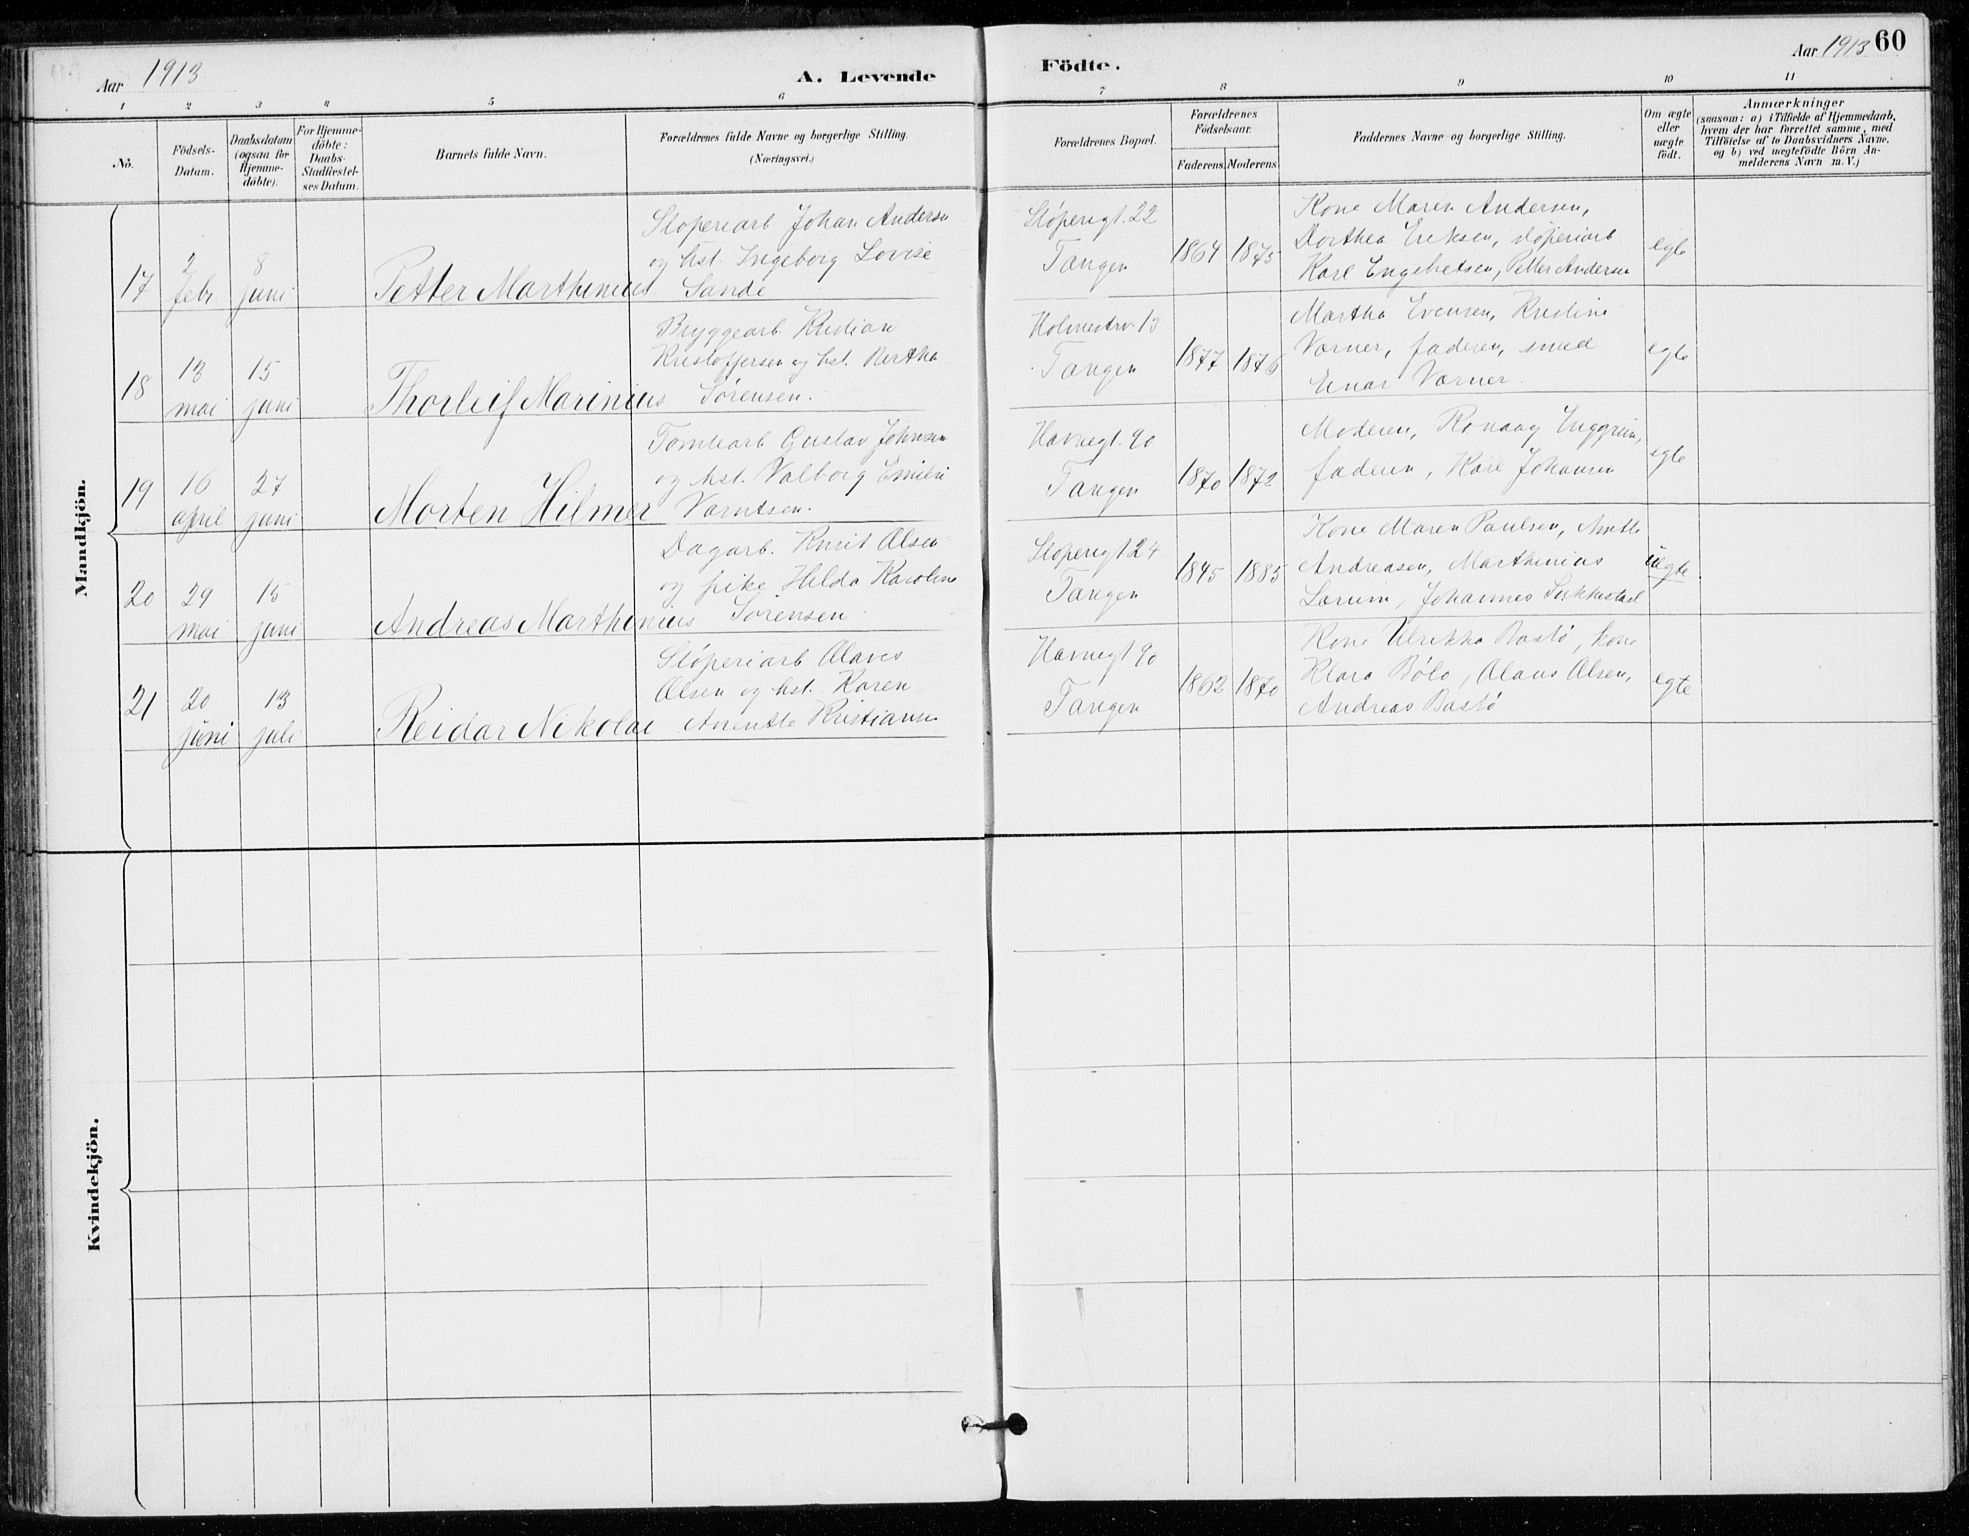 Aar 1913
A. Levende
Födte.
Aar 1913 60
1 2 3 4 5 6 7 8 9 10 11
No.
Födsels-
Datum.
Daabsdatum
(ogsaa for
Hjemme-
döbte).
For Hjemme-
döbte:
Daabs-
Stadfæstel-
ses Datum.
Barnets fulde Navn.
Forældrenes fulde Navne og borgerlige Stilling.
(Næringsvei.)
Forældrenes Bopæl.
Forældrenes
Födselsaar.
Faderens. Moderens.
Faddernes Navne og borgerlige Stilling.
Om ægte
eller
uægte
födt.
Anmærkninger
(saasom: a) i Tilfælde af Hjemmedaab,
hvem der har forrettet samme, med
Tilföielse af to Daabsvidners Navne,
og b) ved uægtefödte Börn An-
melderens Navn m. V.)
Mandkjön.
17
2
febr
8
juni
Petter Marthinius
Støperiarb Johan Andersen
og hst. Ingeborg Lovise
Sande
Støperigt. 22
Tangen
1864 1875
Kone Maren Andersen,
Dorthea Eriksen, støperiarb
Karl Engebretsen, Petter Andersen
egte
18
13
mai
15
juni
Thorleif Marinius
Bryggearb Kristian
Kristoffersen og hst. Bertha
Sørensen.
Holmestrv. 13
Tangen
1877 1876
Martha Evensen, Kristine
Varner, faderen, smed
Einar Varner.
egte
19
16
april
27
juni
Morten Hilmer
Tomtearb Gustav Johnsen
og hst. Valborg Emilie
Varntsen.
Havnegt. 90
Tangen
1870 1872
Moderen,
faderen, Karl Johansen
egte
20
29
mai
15
juni
Andreas Marthinius
Dagarb. Knut Olsen
og pike Hilda Karoline
Sørensen
Støperigt 24
Tangen
1845 1885
Kone Maren Paulsen, Anette
Andreasen, Marthinius
Larum, Johannes Sikkestad
uegte
21
20
juni
13
juli
Reidar Nikolai
Støperiarb Olaves
Olsen og hst. Karen
Anentte Kristianse
Havnegt 90
Tangen
1862 1870
Kone Ulrikka Bastø, kone
Klara Bølo, Olaus Olsen,
Andreas Bastø
egte
Kvindekjön.